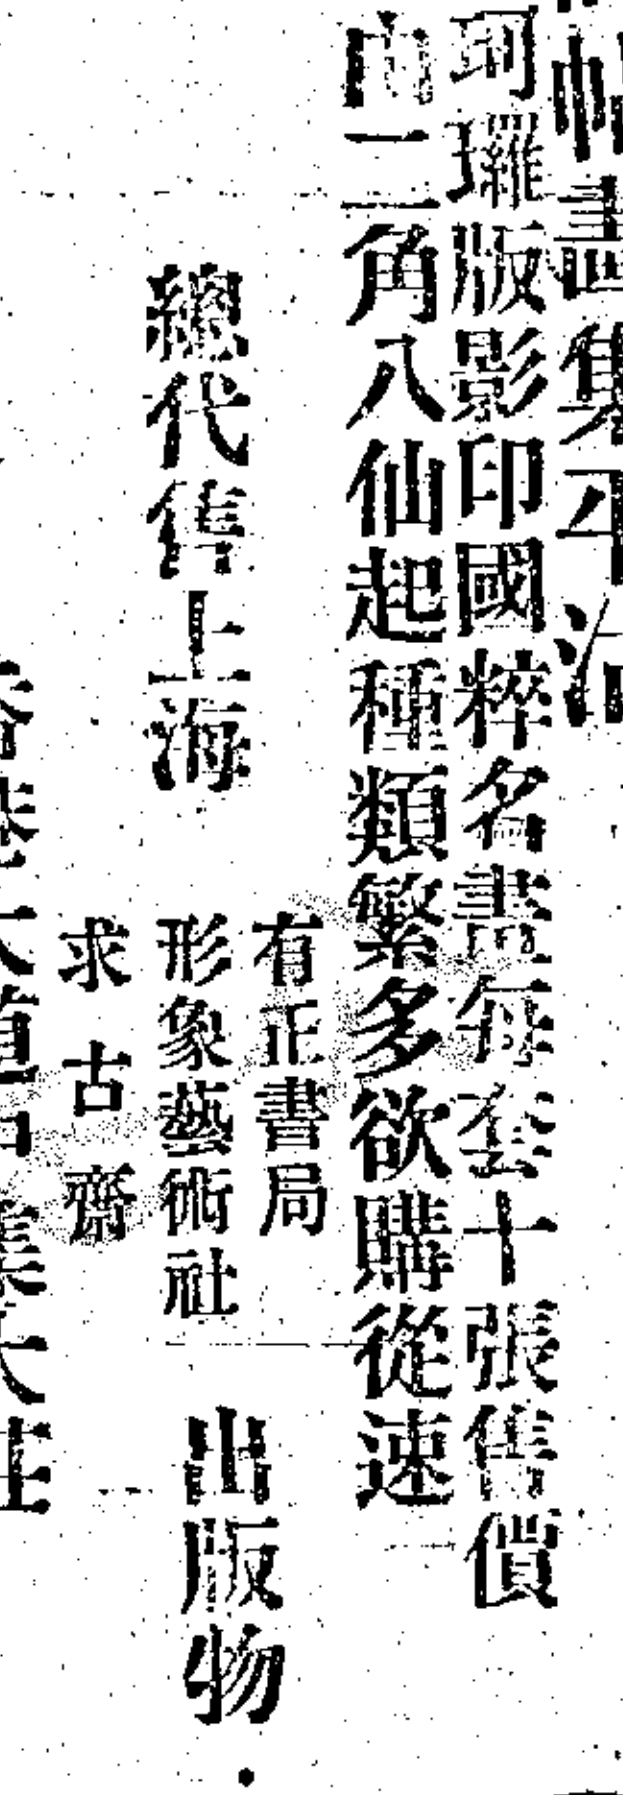 珂瓎版影印國粹名畫每套十張售價
由二角八仙起種類繁多欲購從速
總代售上海
有正書局
形象藝術社
求古齋
出版物